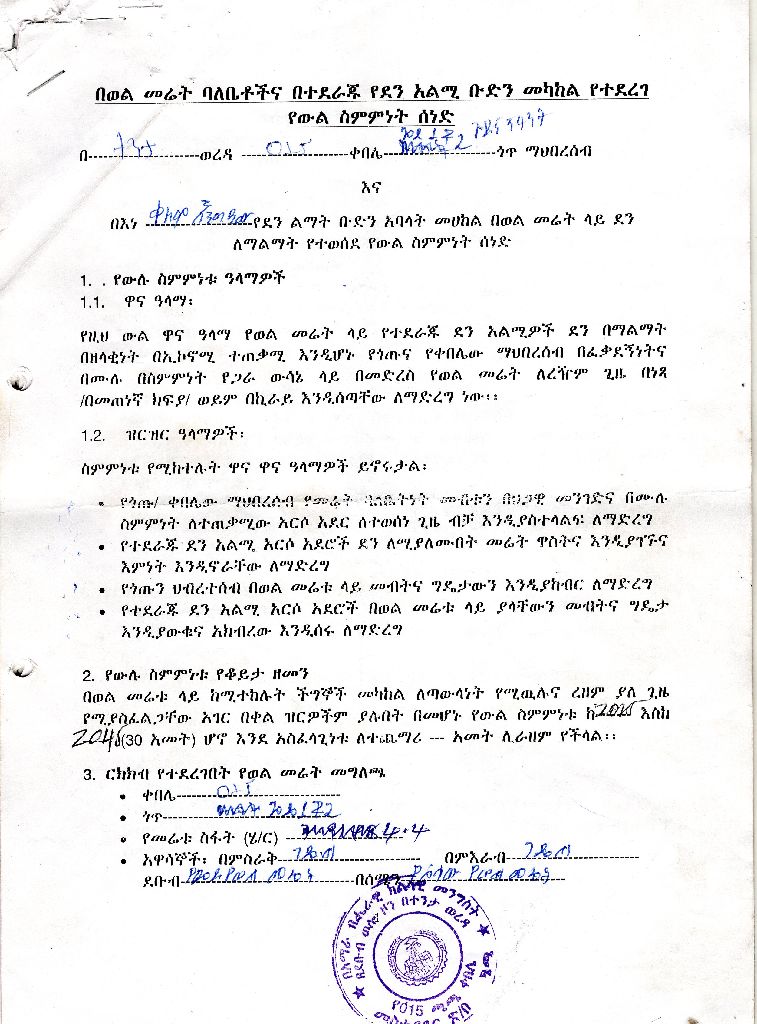 በወል መሬት ባለቤቶችና በተደራጁ የደን አልሚ ቡድን መካከል የተደረገ
የውል ስምምነት ሰነድ
በ ወረዳ ቀበሌ ጎጥ ማህበረሰብ
እና
በእነ የደን ልማት ቡድን አባላት መሀከል በወል መሬት ላይ ደን
ለማልማት የተወሰደ የውል ስምምነት ሰነድ
1. . የውሉ ስምምነቱ ዓላማዎች
1.1. ዋና ዓላማ፡
የዚህ ውል ዋና ዓላማ የወል መሬት ላይ የተደራጁ ደን አልሚዎች ደን በማልማት
በዘላቂነት በኢኮኖሚ ተጠቃሚ እንዲሆኑ የጎጡና የቀበሌው ማህበረሰብ በፈቃደኝነትና
በሙሉ በስምምነት የጋራ ውሳኔ ላይ በመድረስ የወል መሬት ለረዥም ጊዜ በነጻ
/በመጠነኛ ክፍያ/ ወይም በኪራይ እንዲሰጣቸው ለማድረግ ነው፡፡
1.2. ዝርዝር ዓላማዎች፡
ስምምነቱ የሚከተሉት ዋና ዋና ዓላማዎች ይኖሩታል፡
• የጎጡ/ ቀበሌው ማህበረሰብ የመሬት ባለቤትነት መብቱን በህጋዊ መንገድና በሙሉ
ስምምነት ለተጠቃሚው አርሶ አደር ለተወሰነ ጊዜ ብቻ እንዲያስተላልፍ ለማድረግ
• የተደራጁ ደን አልሚ አርሶ አደሮች ደን ለሚያለሙበት መሬት ዋስትና እንዲያገኙና
እምነት እንዲኖራቸው ለማድረግ
• የጎጡን ህብረተሰብ በወል መሬቱ ላይ መብትና ግዴታውን እንዲያከብር ለማድረግ
• የተደራጁ ደን አልሚ አርሶ አደሮች በወል መሬቱ ላይ ያላቸውን መብትና ግዴታ
እንዲያውቁና አክብረው እንዲሰሩ ለማድረግ
2. የውሉ ስምምነቱ የቆይታ ዘመን
በወል መሬቱ ላይ ከሚተከሉት ችግኞች መካከል ለጣውላነት የሚዉሉና ረዘም ያለ ጊዜ
የሚያስፈልጋቸው አገር በቀል ዝርዎችም ያሉበት በመሆኑ የውል ስምምነቱ ከ2015 እስከ
2045(30 አመት) ሆኖ እንደ አስፈላጊነቱ ለተጨማሪ --- አመት ሊራዘም የችላል፡፡
3. ርክክብ የተደረገበት የወል መሬት መግለጫ
• ቀበሌ
• ጎጥ
• የመሬቱ ስፋት (ሄ/ር) 4.4
• አዋሳኞች፡ በምስራቅ በምእራብ
ደቡብ በሰሜን